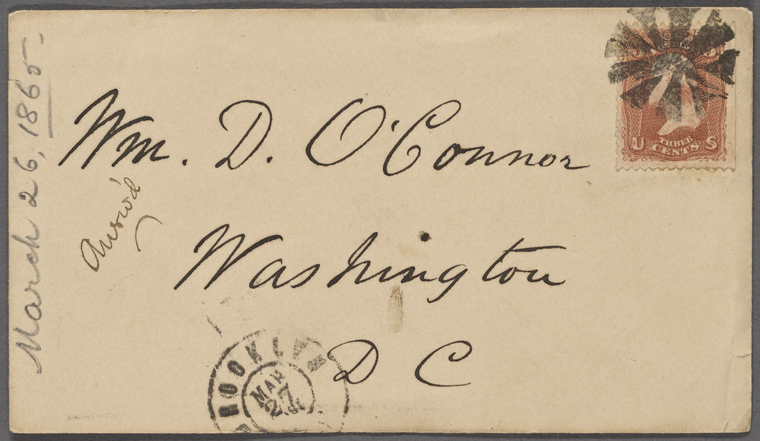 March 26, 1865.
Wm. D. O'Connor
Answ'd
Washington
D C
BROOKLYN
MAR
27
U S
THREE
CENTS